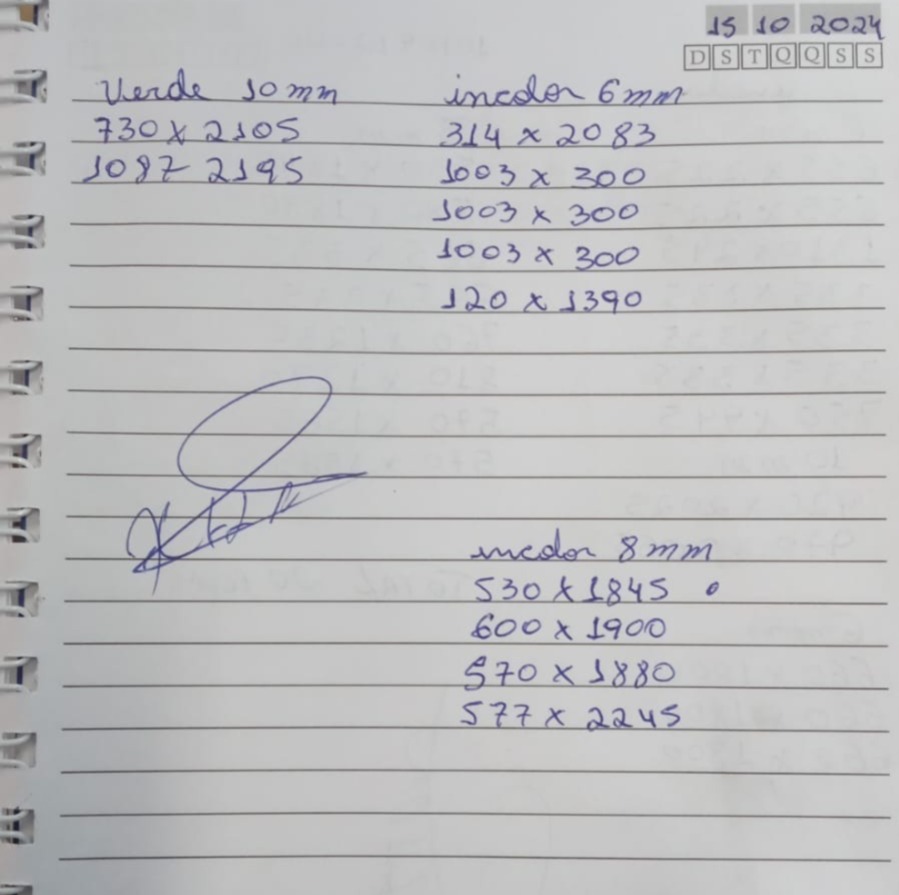 15 10 2024
D S T Q Q S S
Verde 10mm
730 x 2105
1087 2195
incolor 6mm
314 x 2083
1003 x 300
1003 x 300
1003 x 300
120 x 1390
incolor 8mm
530 x 1845
600 x 1900
570 x 1880
577 x 2245